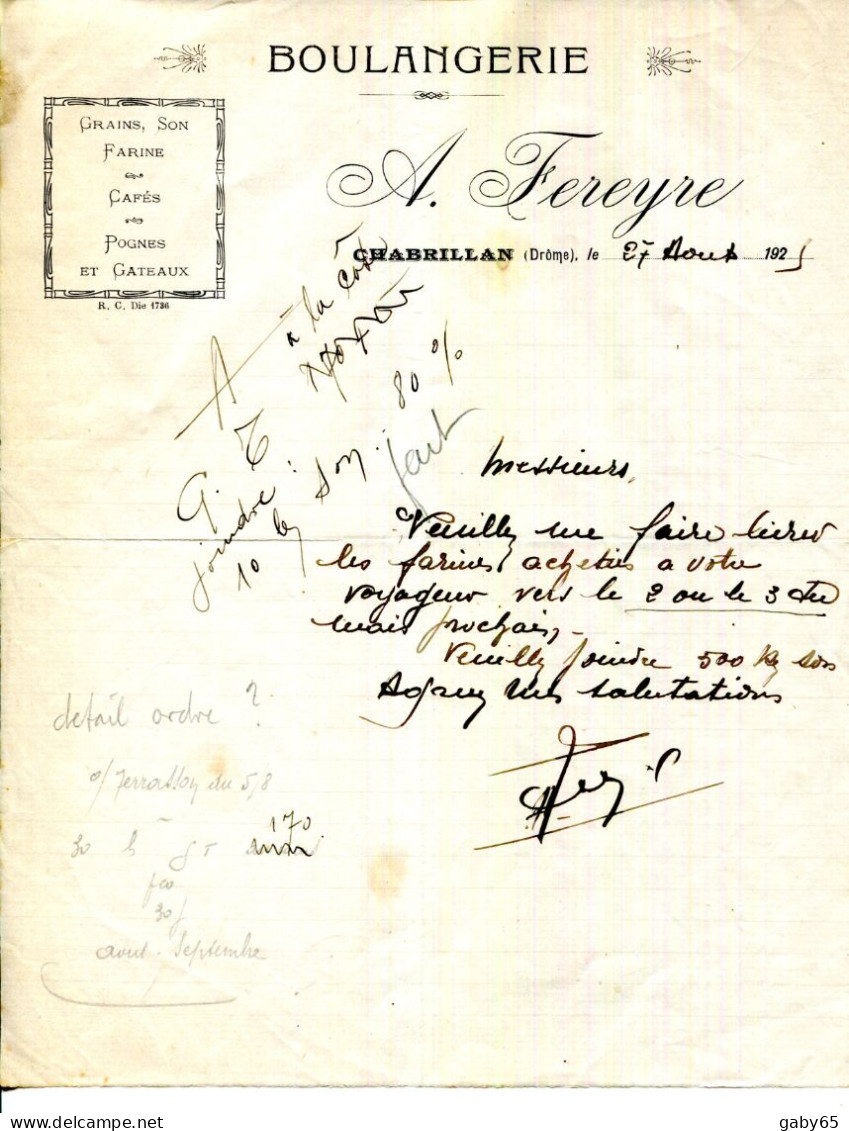 BOULANGERIE
GRAINS, SON
FARINE
CAFÉS
POGNES
ET GATEAUX
R. C. Die 1736
A. Fereyre
CHABRILLAN (Drôme), le 27 Aout 1925
à la cote
80 %
G.
joindre : son
10
fait
Messieurs,
Veuillez me faire livrer
les farines achetées a votre
voyageur vers le 2 ou le 3 du
mois prochain,
Veuillez joindre 500 kg son
Agréez mes salutations
detail ordre ?
du 5/8
170
30
30 f
aout - Septembre
gaby65